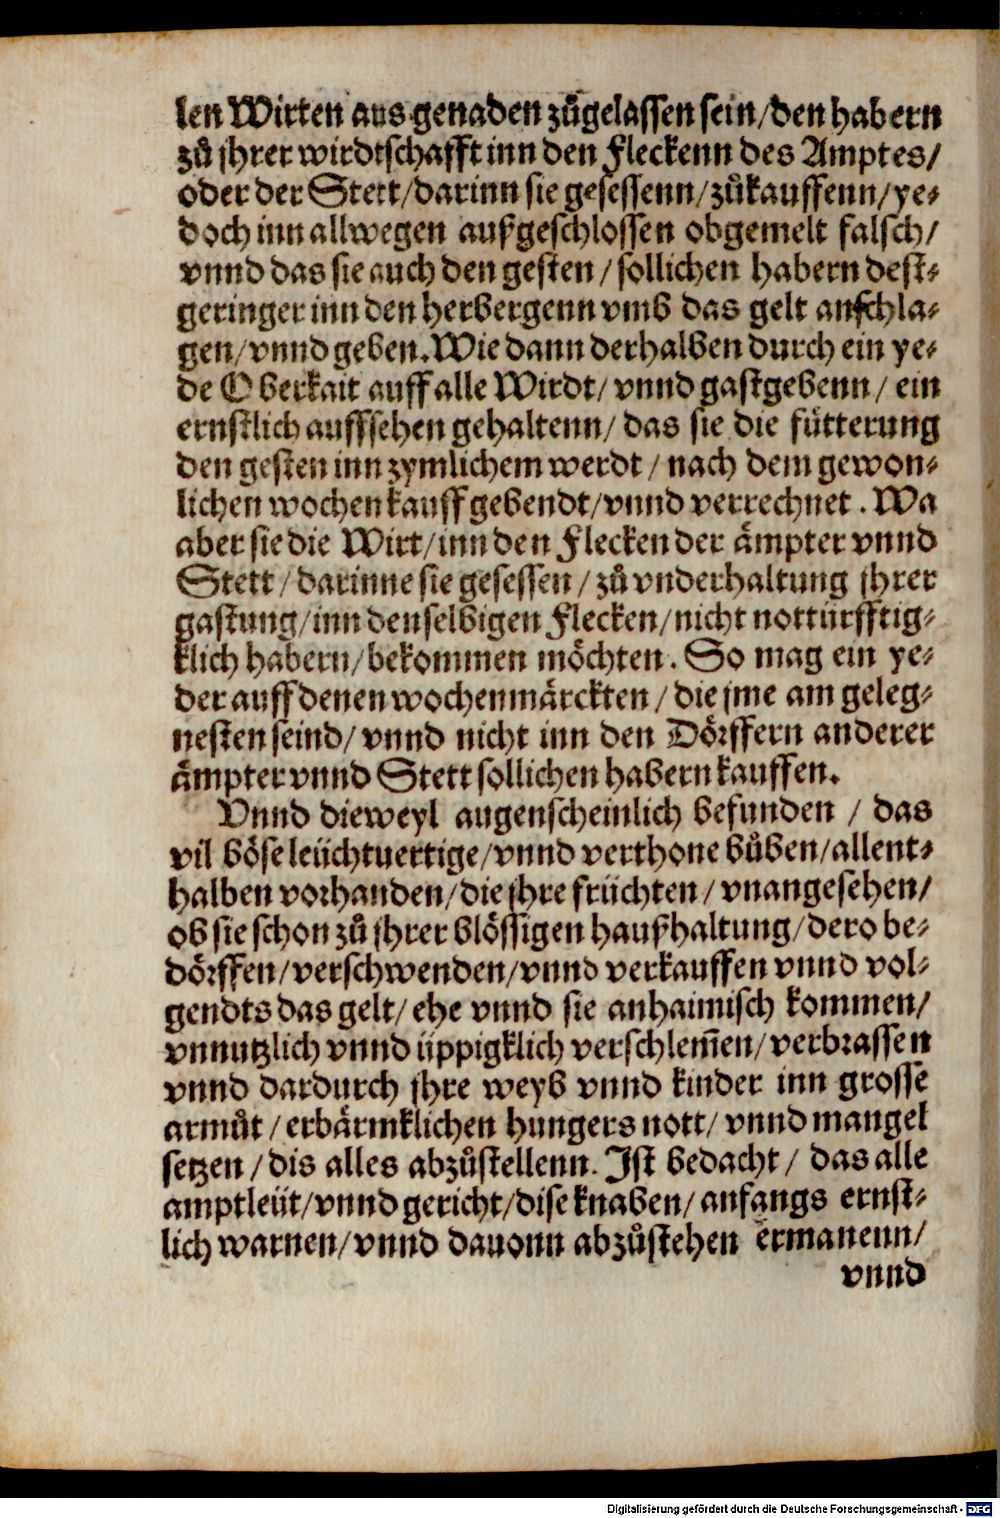 len Wirten aus genaden zůgelassen sein/den habern
zů jhrer wirdtschafft inn den Fleckenn des Amptes/
oder der Stett/darinn sie gesessenn/zůkauffenn/ye-
doch inn allwegen außgeschlossen obgemelt falsch/
vnnd das sie auch den gesten/sollichen habern dest-
geringer inn den herbergenn vmb das gelt anschla-
gen/vnnd geben. Wie dann derhalben durch ein ye-
de Oberkait auff alle Wirdt/vnnd gastgebenn/ein
ernstlich auffsehen gehaltenn/das sie die fütterung
den gesten inn zymlichem werdt/nach dem gewon-
lichen wochenkauff gebendt/vnnd verrechnet. Wa
aber sie die Wirt/inn den Flecken der ämpter vnnd
Stett/darinne sie gesessen/zů vnderhaltung jhrer
gastung/inn denselbigen Flecken/nicht notturfftig-
klich habern/bekommen möchten. So mag ein ye-
der auff denen wochenmärckten/die jme am geleg-
nesten seind/vnnd nicht inn den Dörffern anderer
ämpter vnnd Stett sollichen habern kauffen.
Vnnd dieweyl augenscheinlich befunden/das
vil böse leüchtuertige/vnnd verthone bůben/allent-
halben vorhanden/die jhre früchten/vnangesehen/
ob sie schon zů jhrer blössigen haußhaltung/dero be-
dörffen/verschwenden/vnnd verkauffen vnnd vol-
gendts das gelt/ehe vnnd sie anhaimisch kommen/
vnnutzlich vnnd üppigklich verschlem̃en/verbrassen
vnnd dardurch jhre weyb vnnd kinder inn grosse
armůt/erbärmklichen hungers nott/vnnd mangel
setzen/dis alles abzůstellenn. Ist bedacht/das alle
amptleüt/vnnd gericht/dise knaben/anfangs ernst-
lich warnen/vnnd dauonn abzůstehen ermanenn/
vnnd
Digitalisierung gefördert durch die Deutsche Forschungsgemeinschaft - DFG